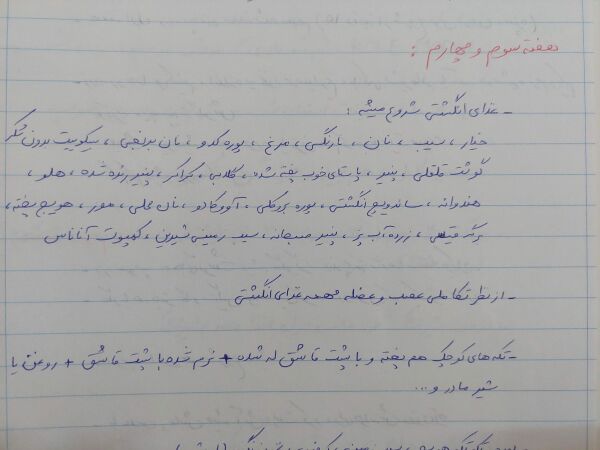 هفته سوم و چهارم :
- غذای انگشتی شروع میشه :
خیار ، سیب ، نان ، نارنگی ، مرغ ، پوره کدو ، نان برنجی ، بیکوییت بدون شکر
گوشت قلقلی ، پنیر ، پاستای خوب پخته شده ، گلابی ، کراکر ، پنیر رنده شده ، هلو ،
هندوانه ، ساندویچ انگشتی ، پوره بروکلی ، آووکادو ، نان محلی ، موز ، هویج پخته ،
برگه قیسی ، زرده آب پز ، پنیر صبحانه ، سیب زمینی شیرین ، کمپوت آناناس
- از نظر تکاملی عصب و عضله مهمه غذای انگشتی
- تکه های کوچک هم پخته و با پشت قاشق له شده + نرم شده با پشت قاشق + روغن یا
شیر مادر و...